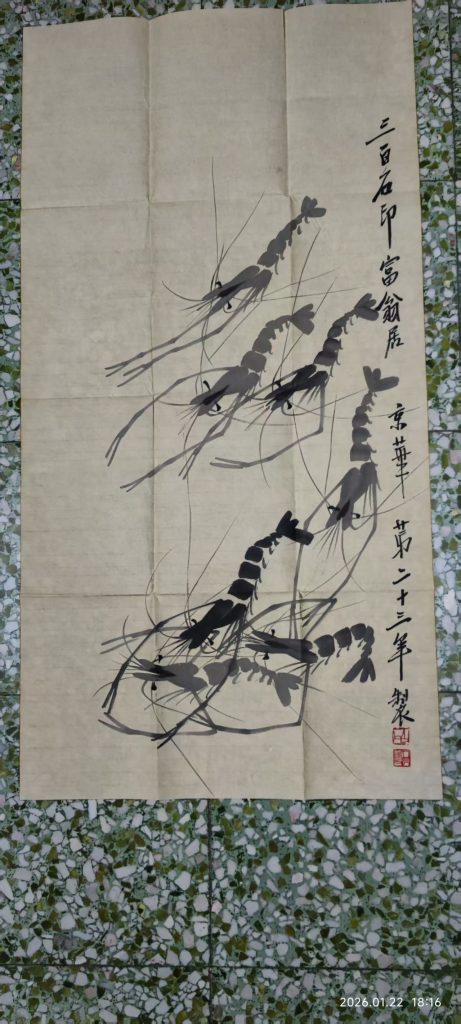 三百石印富翁居
京華第二十三年製
2026.01.22 18:16